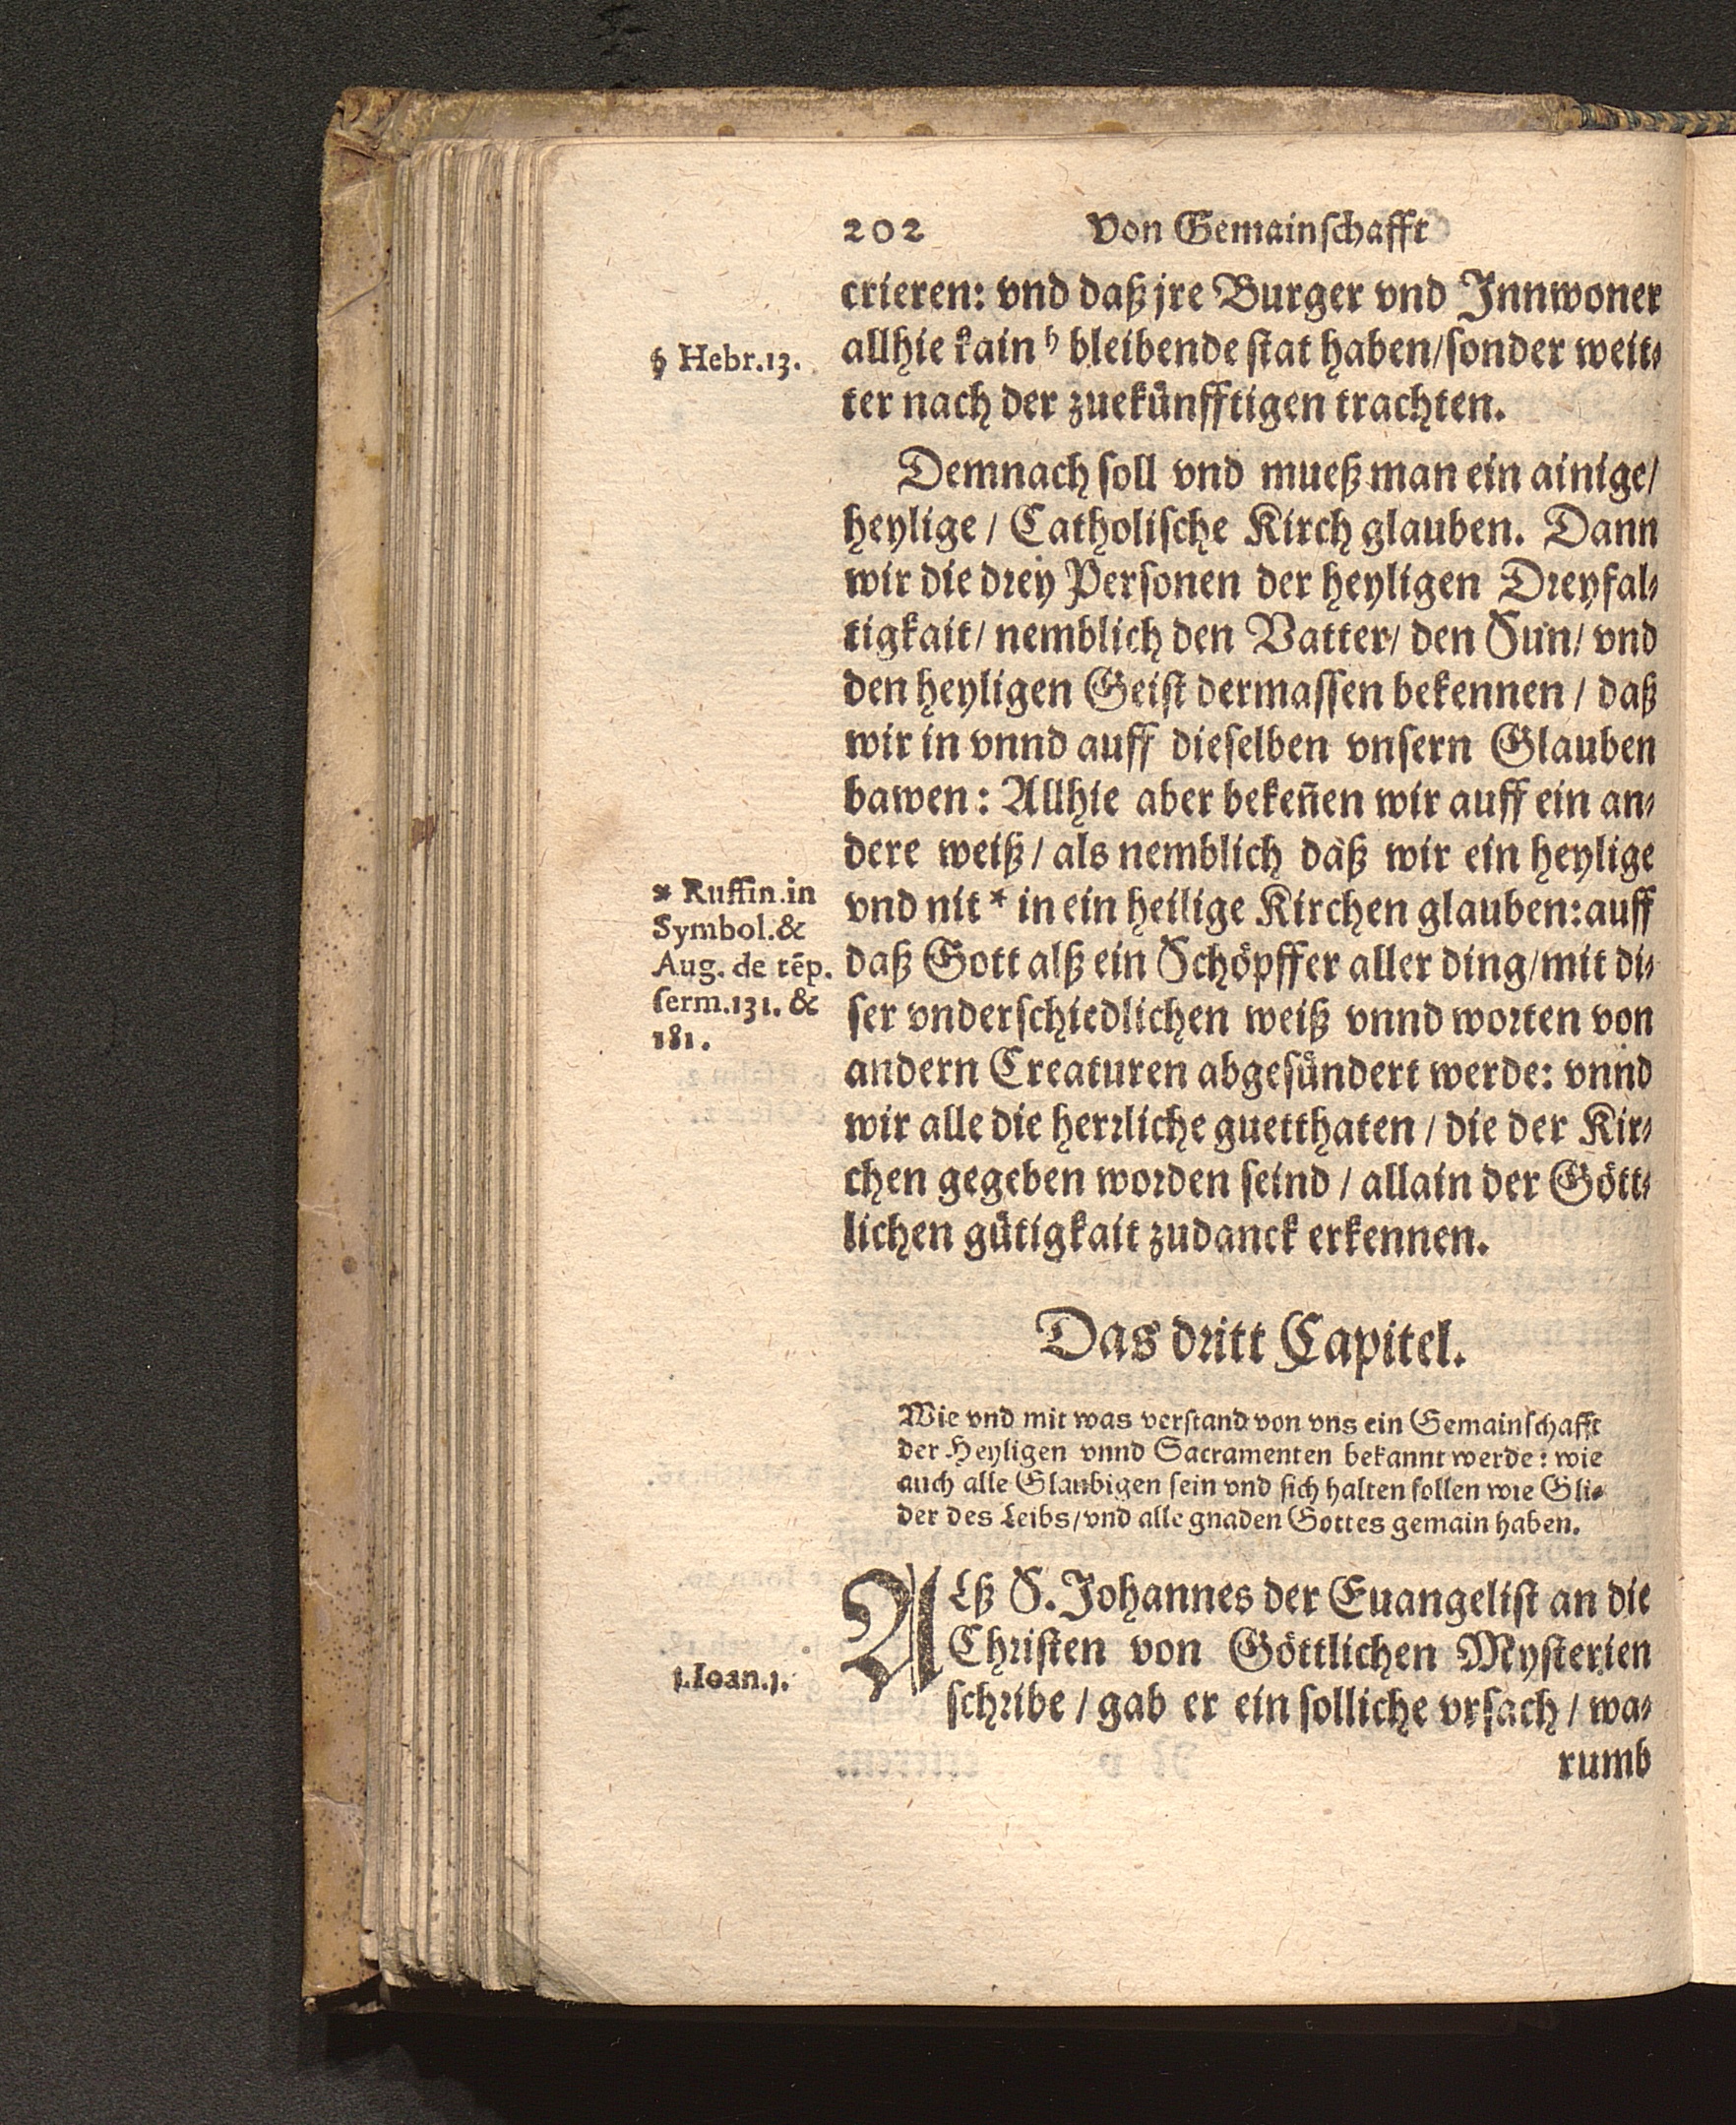 202 Von Gemainschafft
crieren: vnd daß jre Burger vnd Innwoner
allhie kain ᵇ bleibende stat haben/sonder weit⸗
ter nach der zuekünfftigen trachten.
Hebr.13.
Demnach soll vnd mueß man ein ainige/
heylige / Catholische Kirch glauben. Dann
wir die drey Personen der heyligen Dreyfal⸗
tigkait/ nemblich den Vatter/ den Sun/ vnd
den heyligen Geist dermassen bekennen / daß
wir in vnnd auff dieselben vnsern Glauben
bawen: Allhie aber bekeñen wir auff ein an⸗
dere weiß / als nemblich daß wir ein heylige
vnd nit * in ein heilige Kirchen glauben: auff
daß Gott alß ein Schöpffer aller ding/mit di⸗
ser vnderschiedlichen weiß vnnd worten von
andern Creaturen abgesündert werde: vnnd
wir alle die herrliche guetthaten / die der Kir⸗
chen gegeben worden seind / allain der Gött⸗
lichen gütigkait zudanck erkennen.
* Ruffin.in
Symbol.&
Aug. de tẽp.
serm.131. &
181.
Das dritt Capitel.
Wie vnd mit was verstand von vns ein Gemainschafft
der Heyligen vnnd Sacramenten bekannt werde: wie
auch alle Glaubigen sein vnd sich halten sollen wie Gli⸗
der des Leibs/vnd alle gnaden Gottes gemain haben.
ALß S. Johannes der Euangelist an die
Christen von Göttlichen Mysterien
schribe / gab er ein solliche vrsach / wa⸗
1.Ioan.1.
rumb